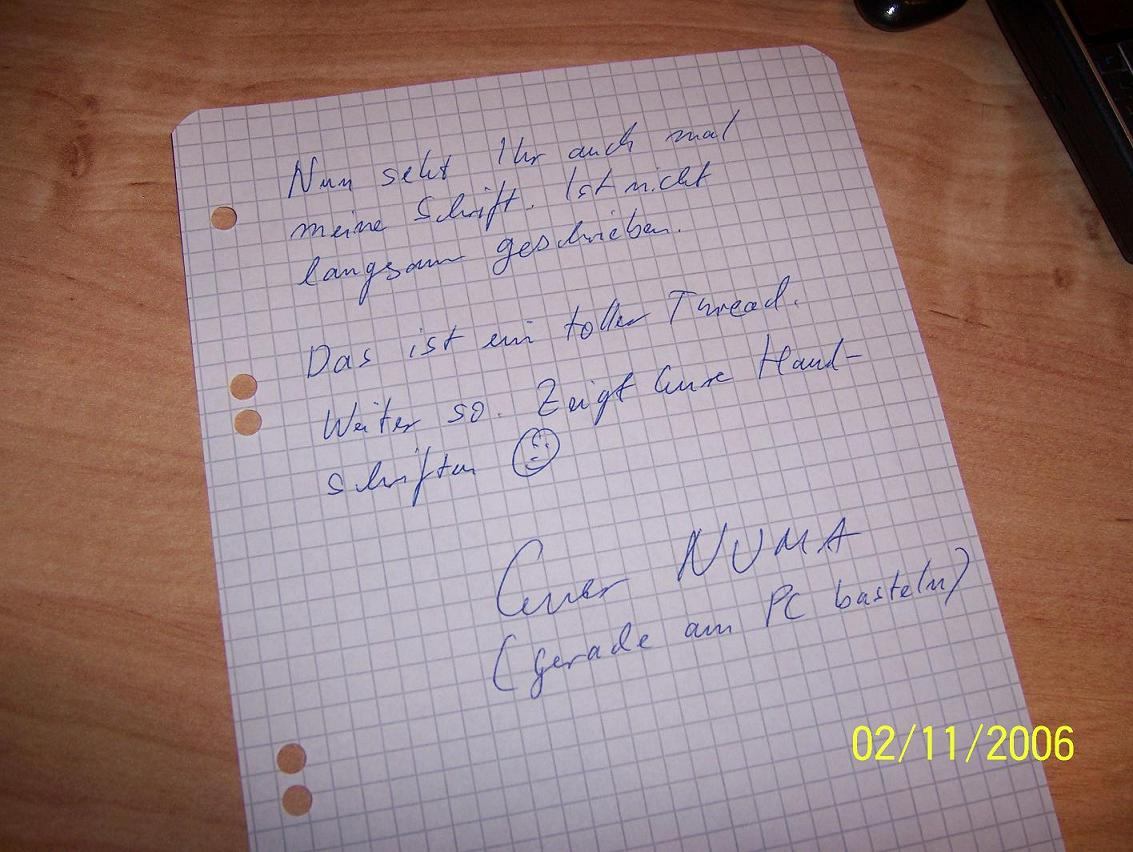 Nun seht Ihr auch mal
meine Schrift. Ist nicht
langsam geschrieben.
Das ist ein toller Thread.
Weiter so. Zeigt Eure Hand-
schriften ☺
Euer NUMA
(gerade am PC basteln)
02/11/2006